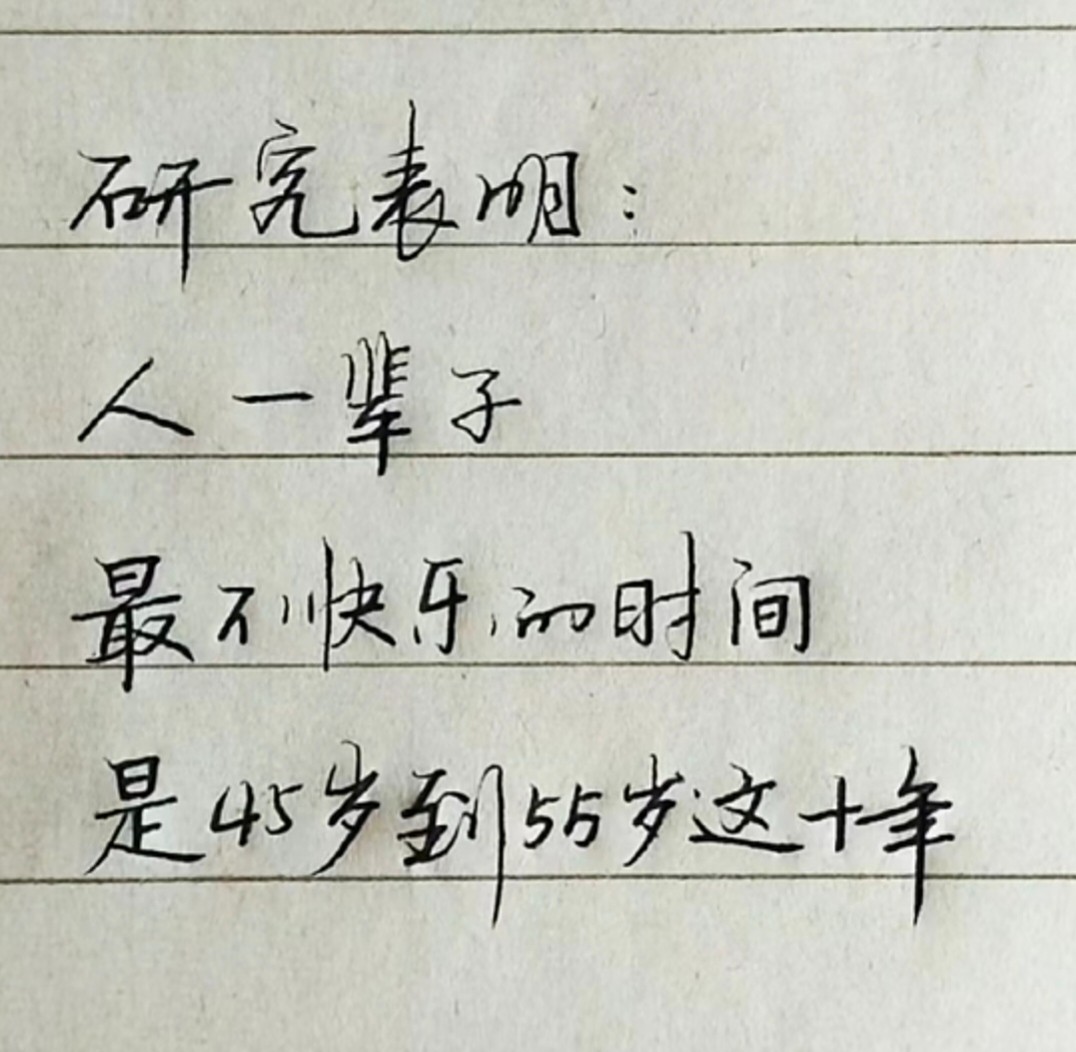 研究表明：
人一辈子
最不快乐的时间
是45岁到55岁这十年